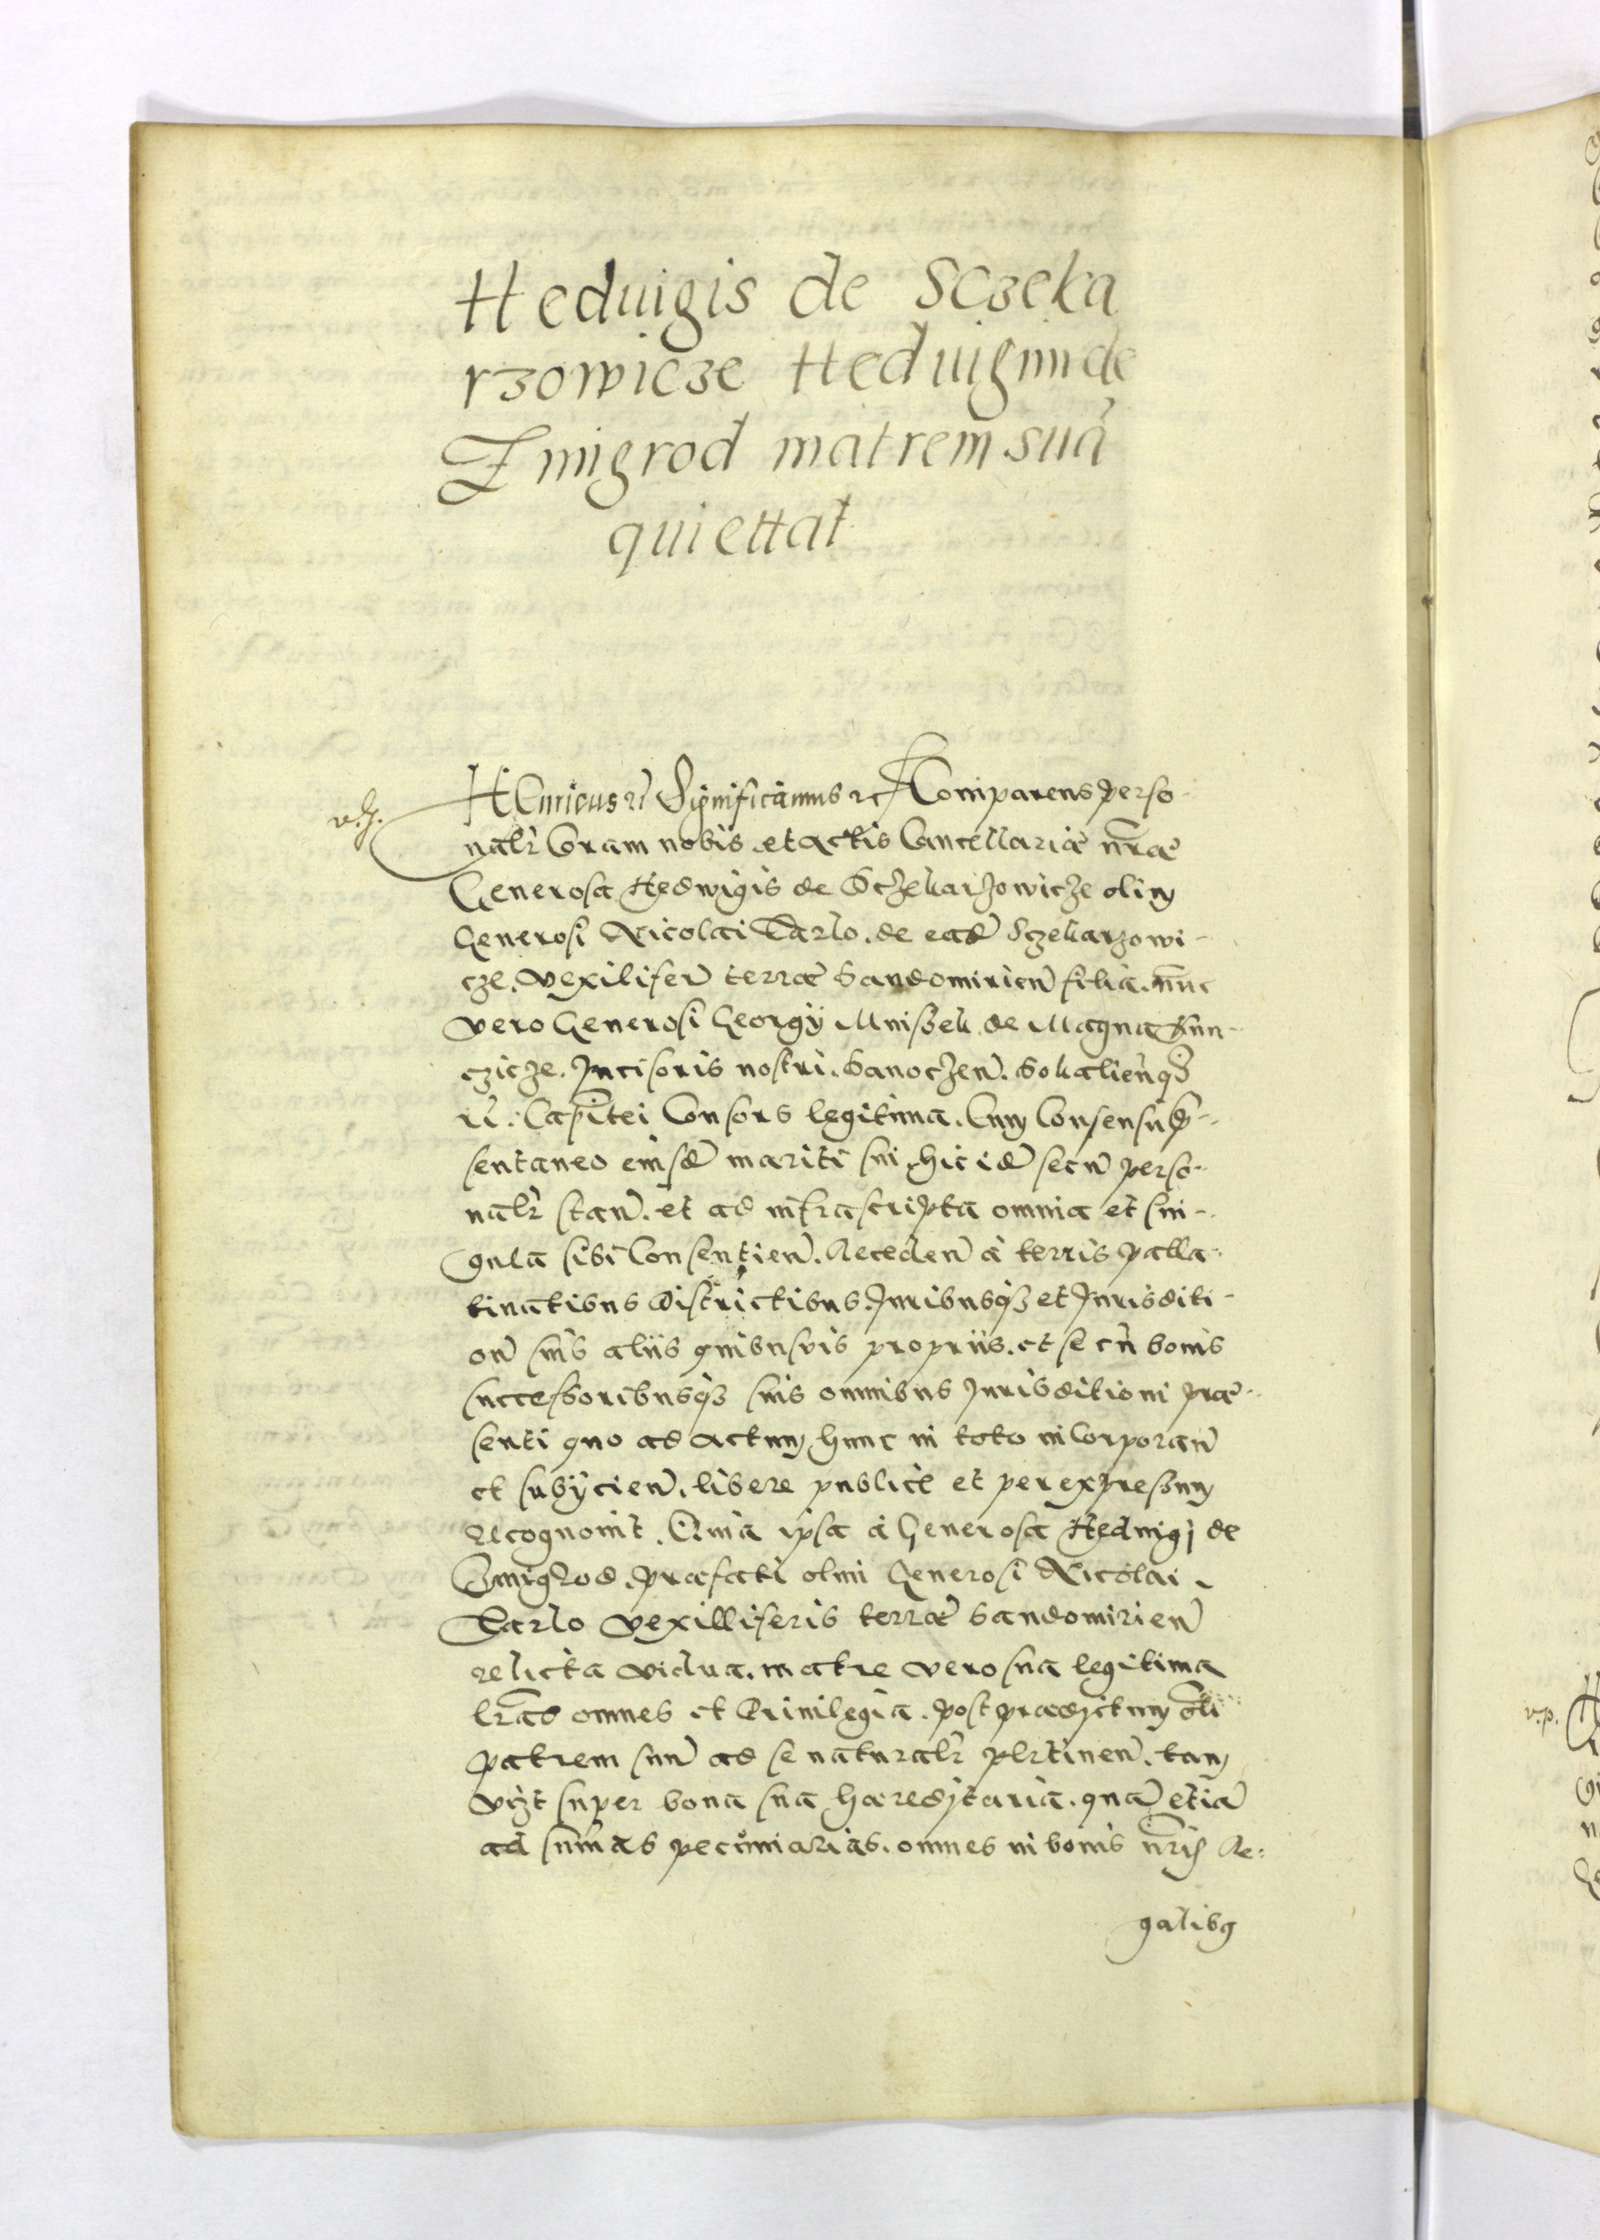 Heduigis de Sczeka
rzowicze Heduigim de
Zmigrod matrem suã
quiettat
HEnricus &c̃ Significamus &c Comparens perso-
nalr̃ Coram nobis et Actis Cancellariæ nr̃æ
Generosa Hedwigis de Sczekarzowicze olim
Generosi Nicolai Tarlo de eadẽ Sczekarzowi-
cze. Vexiliferi terræ Sandomirien̄ filia. nunc
vero Generosi Georgÿ Mnissek de Magna Kun-
czicze. Incisoris nostri. Sanoczen̄. Sokalien̄q3
&c̃: Capitei Consors legitima. Cum Consensu p̃-
sentaneo eiusdẽ mariti sui hic idẽ secũ perso-
nalr̃ stan̄. et ad infrascripta omnia et sin-
gula sibi Consentien̄. Receden̄ à terris palla-
tinatibus districtibus. Iuribusq3 et Iurisditi-
on̄ suis aliis quibusvis propriis. et se cũ bonis
successoribusq3 suis omnibus Iurisditioni præ-
senti quo ad Actum hunc in toto inCorporan̄
et subÿcien̄. libere publice et per expressum
recognouit. Quia ipsa à Generosa Heduigi de
Zmigrod. præfati olim Generosi Nicolai
Tarlo vexilliferis terræ Sandomirien̄
relicta vidua. matre vero sua legitima
lr̃as omnes et Priuilegia. post prædictum oli
patrem suũ ad se naturalr̃ p̱rtinen̄. tam
vizt super bona sua hæreditaria. quã etiã
ad sum̃as pecuniarias. omnes in bonis nr̃is Re:
galibq
v. p.